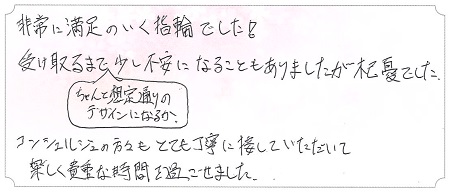 非常に満足のいく指輪でした!
受け取るまで少し不安になることもありましたが杞憂でした.
ちゃんと想定通りの
デザインになるか、
コンシェルジュの方々もとても丁寧に接していただいて
楽しく貴重な時間を過ごせました.